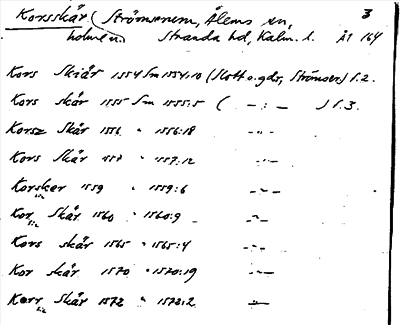 Korsskär (Strömsrum, Ålems sn, 3
holme i Stranda hd, Kalm. l. ÄT 164
Kors Skiär 1554 Sm 1554:10 (Slott o. gds, Strömser) f. 2.
Kors skär 1555 Sm 1555:5 ( - : - ) f. 3.
Korsz Skär 1556 " 1556:18 - " -
Kors Skär 1557 " 1557:12 - " -
Korskar 1559 " 1559:6 - " -
Kor Skär 1560 " 1560:9 - " -
Kors skär 1565 " 1565:4 - " -
Kor skär 1570 " 1570:19 - " -
Korr Skär 1572 " 1572:2 - " -